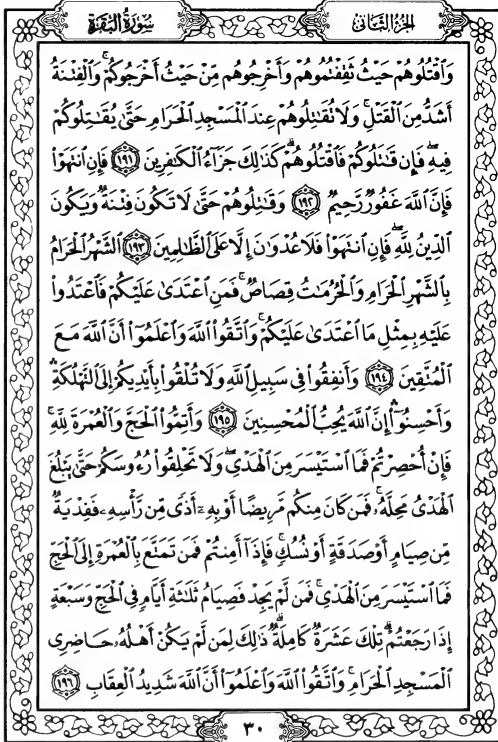 سُورَةُ البَقَرَةِ
الجُزْءُ الثَّانِى
وَٱقْتُلُوهُمْ حَيْثُ ثَقِفْتُمُوهُمْ وَأَخْرِجُوهُم مِّنْ حَيْثُ أَخْرَجُوكُمْ ۚ وَٱلْفِتْنَةُ
أَشَدُّ مِنَ ٱلْقَتْلِ ۚ وَلَا تُقَٰتِلُوهُمْ عِندَ ٱلْمَسْجِدِ ٱلْحَرَامِ حَتَّىٰ يُقَٰتِلُوكُمْ
فِيهِ ۖ فَإِن قَٰتَلُوكُمْ فَٱقْتُلُوهُمْ ۗ كَذَٰلِكَ جَزَآءُ ٱلْكَٰفِرِينَ ١٩١ فَإِنِ ٱنتَهَوْا۟
فَإِنَّ ٱللَّهَ غَفُورٌ رَّحِيمٌ ١٩٢ وَقَٰتِلُوهُمْ حَتَّىٰ لَا تَكُونَ فِتْنَةٌ وَيَكُونَ
ٱلدِّينُ لِلَّهِ ۖ فَإِنِ ٱنتَهَوْا۟ فَلَا عُدْوَٰنَ إِلَّا عَلَى ٱلظَّٰلِمِينَ ١٩٣ ٱلشَّهْرُ ٱلْحَرَامُ
بِٱلشَّهْرِ ٱلْحَرَامِ وَٱلْحُرُمَٰتُ قِصَاصٌ ۚ فَمَنِ ٱعْتَدَىٰ عَلَيْكُمْ فَٱعْتَدُوا۟
عَلَيْهِ بِمِثْلِ مَا ٱعْتَدَىٰ عَلَيْكُمْ ۚ وَٱتَّقُوا۟ ٱللَّهَ وَٱعْلَمُوٓا۟ أَنَّ ٱللَّهَ مَعَ
ٱلْمُتَّقِينَ ١٩٤ وَأَنفِقُوا۟ فِى سَبِيلِ ٱللَّهِ وَلَا تُلْقُوا۟ بِأَيْدِيكُمْ إِلَى ٱلتَّهْلُكَةِ ۛ
وَأَحْسِنُوٓا۟ ۛ إِنَّ ٱللَّهَ يُحِبُّ ٱلْمُحْسِنِينَ ١٩٥ وَأَتِمُّوا۟ ٱلْحَجَّ وَٱلْعُمْرَةَ لِلَّهِ ۚ
فَإِنْ أُحْصِرْتُمْ فَمَا ٱسْتَيْسَرَ مِنَ ٱلْهَدْىِ ۖ وَلَا تَحْلِقُوا۟ رُءُوسَكُمْ حَتَّىٰ يَبْلُغَ
ٱلْهَدْىُ مَحِلَّهُۥ ۚ فَمَن كَانَ مِنكُم مَّرِيضًا أَوْ بِهِۦٓ أَذًى مِّن رَّأْسِهِۦ فَفِدْيَةٌ
مِّن صِيَامٍ أَوْ صَدَقَةٍ أَوْ نُسُكٍ ۚ فَإِذَآ أَمِنتُمْ فَمَن تَمَتَّعَ بِٱلْعُمْرَةِ إِلَى ٱلْحَجِّ
فَمَا ٱسْتَيْسَرَ مِنَ ٱلْهَدْىِ ۚ فَمَن لَّمْ يَجِدْ فَصِيَامُ ثَلَٰثَةِ أَيَّامٍ فِى ٱلْحَجِّ وَسَبْعَةٍ
إِذَا رَجَعْتُمْ ۗ تِلْكَ عَشَرَةٌ كَامِلَةٌ ۗ ذَٰلِكَ لِمَن لَّمْ يَكُنْ أَهْلُهُۥ حَاضِرِى
ٱلْمَسْجِدِ ٱلْحَرَامِ ۚ وَٱتَّقُوا۟ ٱللَّهَ وَٱعْلَمُوٓا۟ أَنَّ ٱللَّهَ شَدِيدُ ٱلْعِقَابِ ١٩٦
٣٠